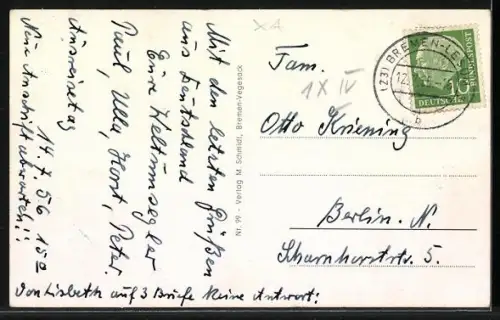 Mit den letzten Grüßen
aus Deutschland
Eure Weltumsegler
Paul, Ulla, Horst, Peter.
Ausreisetag
14.7.56 15⁰⁰
Neue Anschrift abwarten!!
Von Lisbeth auf 3 Briefe keine Antwort!
Nr. 99 - Verlag M. Schmidt, Bremen-Vegesack
X4
1X IV
(23) BREMEN-LE
12
b
DEUTSCHE
BUNDESPOST
10
Fam.
Otto Kriening
Berlin. N.
Scharnhorststr. 5.